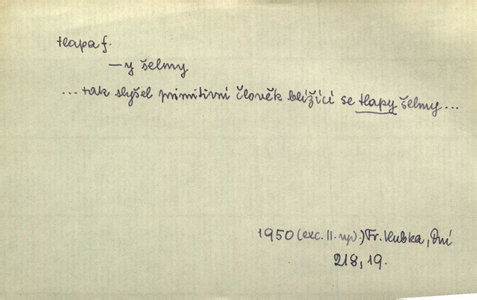 tlapa f.
—y šelmy
... tak slyšel primitivní člověk blížící se tlapy šelmy ...
1950 (exc. II. vyd.) Fr. Kubka, Dní
218, 19.